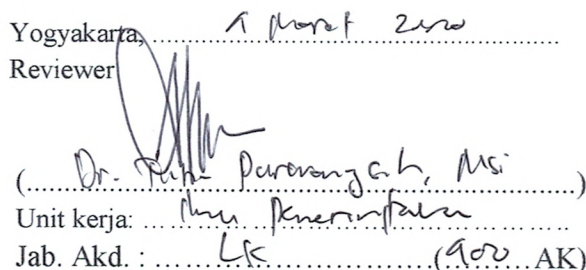 Yogyakarta, ..... Maret 2020
Reviewer
(Dr. Purwaningsih, Msi)
Unit kerja: Ilmu Pemerintahan
Jab. Akd. : LK (900 AK)